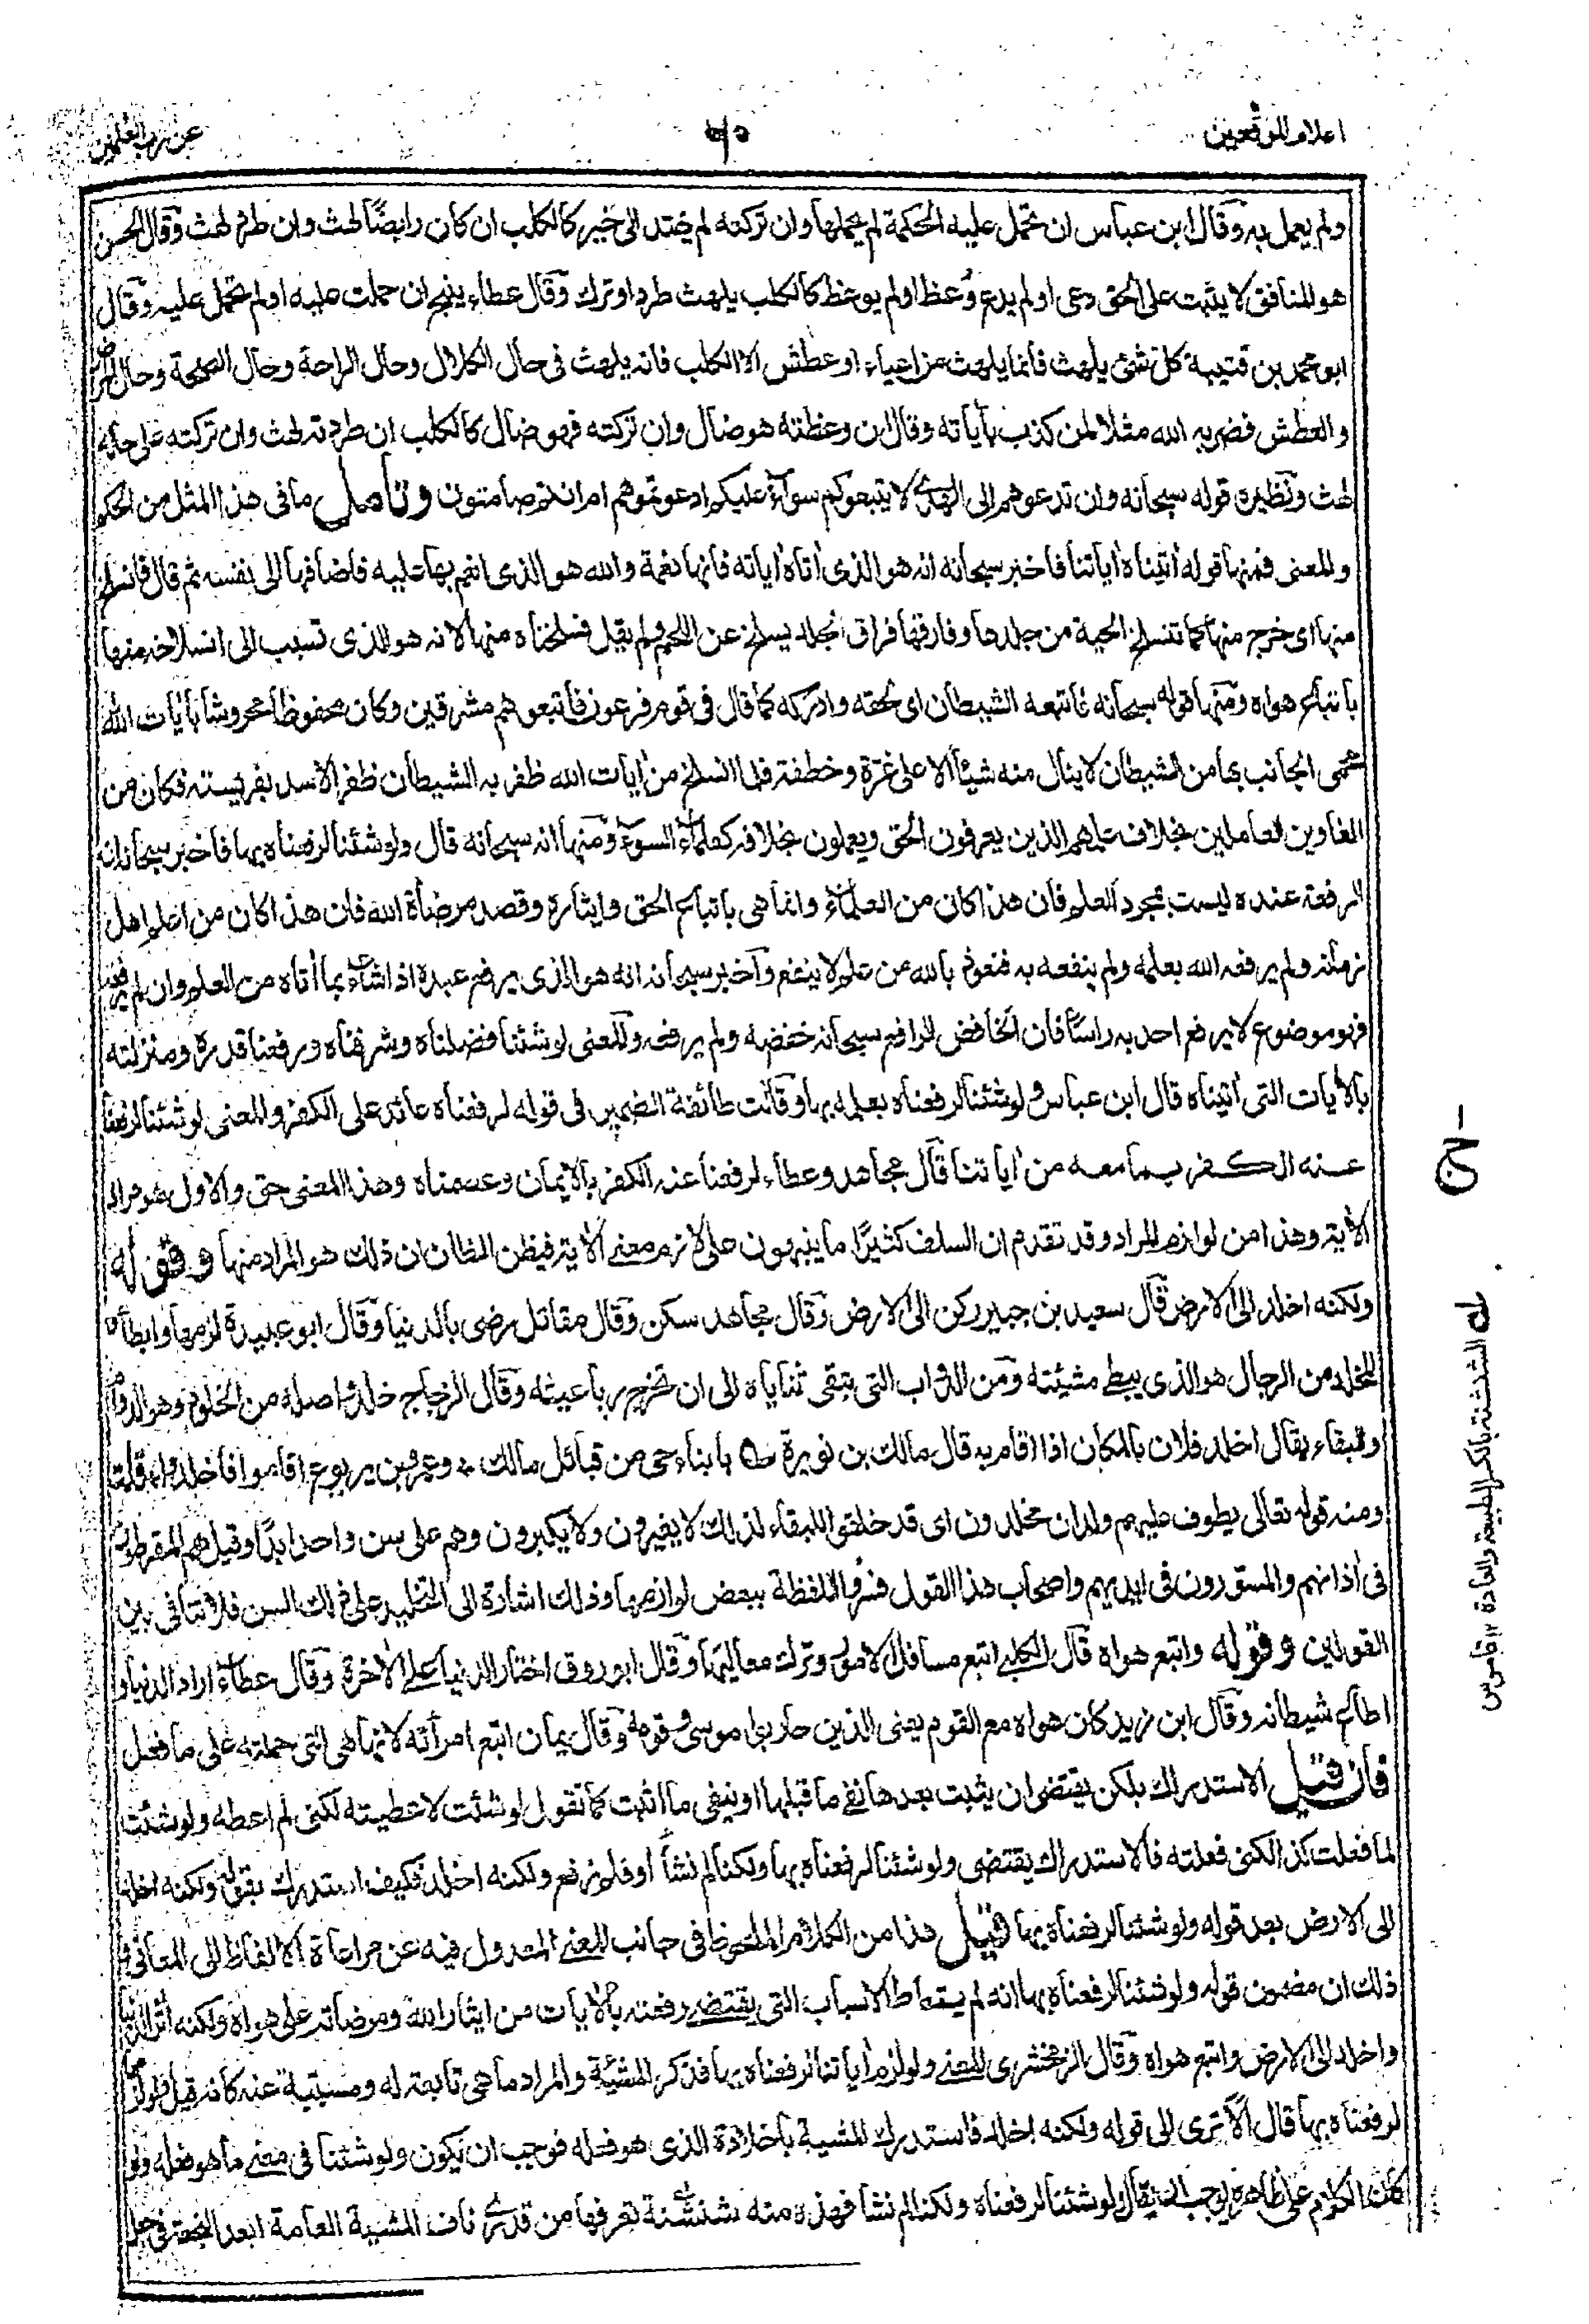 اعلام الموقعين
عن رب العلمين
ولم يعمل به وقال ابن عباس ان تحمل عليه الحكمة لم يحملها وان تركته لم يهتد الى خير كالكلب ان كان رابضًا لهث وان طرد لهث وقال الحسن
هو المنافق لا يثبت على الحق دعى او لم يدع وعظ او لم يوعظ كالكلب يلهث طرد او ترك وقال عطاء ينبح ان حملت عليه او لم تحمل عليه وقال
ابو محمد بن قتيبة كل شئ يلهث فانما يلهث من اعياء او عطش الا الكلب فانه يلهث فى حال الكلال وحال الراحة وحال الصحة وحال المرض
والعطش فضربه الله مثلا لمن كذب بأياته وقال ان وعظته هو ضال وان تركته فهو ضال كالكلب ان طردته لهث وان تركته على حاله
لهث ونظيره قوله سبحانه وان تدعوهم الى الهدى لا يتبعوكم سواء عليكم ادعوتموهم ام انتم صامتون وتأمل ما فى هذا المثل من الحكم
والمعنى فمنها قوله أتيناه أياتنا فاخبر سبحانه انه هو الذى أتاه أياته فانها نعمة والله هو الذى انعم بها عليه فاضافها الى نفسه ثم قال فانسلخ
منها اى خرج منها كما تنسلخ الحية من جلدها وفارقها فراق الجلد يسلخ عن اللحم ولم يقل فسلخناه منها لانه هو الذى تسبب الى انسلاخه منها
باتباع هواه ومنها قوله سبحانه فأتبعه الشيطان اى لحقه وادركه كما قال فى قوم فرعون فأتبعوهم مشرقين وكان محفوظا محروسا بأيات الله
محمى الجانب بها من الشيطان لا ينال منه شيأ الا على غرة وخطفة فلما انسلخ من أيات الله ظفر به الشيطان ظفر الاسد بفريسته فكان من
الغاوين العاملين بخلاف علمهم الذين يعرفون الحق ويعملون بخلافه كعلماء السوء ومنها انه سبحانه قال ولو شئنا لرفعناه بها فاخبر سبحانه ان
الرفعة عنده ليست بمجرد العلم فان هذا كان من العلماء وانما هى باتباع الحق وايثاره وقصد مرضاة الله فان هذا كان من اعلم اهل
زمانه ولم يرفعه الله بعلمه ولم ينفعه به فنعوذ بالله من علم لا ينفع واخبر سبحانه انه هو الذى يرفع عبده اذا شاء بما أتاه من العلم وان لم يرفعه
فهو موضوع لا يرفع احد به راسًا فان الخافض الرافع سبحانه خفضه ولم يرفعه والمعنى لو شئنا فضلناه وشرفناه ورفعنا قدره ومنزلته
بالأيات التى أتيناه قال ابن عباس ولو شئنا لرفعناه بعلمه بها وقالت طائفة الضمير فى قوله لرفعناه عائد على الكفر والمعنى لو شئنا لرفعنا
عنه الكفر بما معه من أياتنا قال مجاهد وعطاء لرفعنا عنه الكفر بالايمان وعصمناه وهذا المعنى حق والاول هو مراد
الأية وهذا من لوازم المراد وقد تقدم ان السلف كثيرًا ما ينبهون على لازم معنى الأية فيظن الظان ان ذلك هو المراد منها وقوله
ولكنه اخلد الى الارض قال سعيد بن جبير ركن الى الارض وقال مجاهد سكن وقال مقاتل رضى بالدنيا وقال ابو عبيدة لزمها وابطأ
المخلد من الرجال هو الذى يبطئ مشيته ومن الدواب التى تبقى ثناياه الى ان تخرج رباعيته وقال الزجاج خلد اصله من الخلود وهو الدوام
والبقاء يقال اخلد فلان بالمكان اذا اقام به قال مالك بن نويرة بابناء حى من قبائل مالك وعمرو بن يربوع اقاموا فاخلدوا قلت
ومنه قوله تعالى يطوف عليهم ولدان مخلدون اى قد خلقوا للبقاء لذلك لا يتغيرون ولا يكبرون وهم على سن واحد ابدًا وقيل هم المقرطون
فى أذانهم والمسورون فى ايديهم واصحاب هذا القول فسروا اللفظة ببعض لوازمها وذلك اشارة الى التخليد على ذلك السن فلا تنافى بين
القولين وقوله واتبع هواه قال الكلبى اتبع مسافل الامور وترك معاليها وقال ابو روق اختار الدنيا على الأخرة وقال عطاء اراد الدنيا و
اطاع شيطانه وقال ابن زيد كان هواه مع القوم يعنى الذين حاربوا موسى وقومه وقال يمان اتبع امرأته لانها هى التى حملته على ما فعل
فان قيل الاستدراك بلكن يقتضى ان يثبت بعدها نفى ما قبلها او ينفى ما اثبت كما تقول لو شئت لاعطيته لكنى لم اعطه ولو شئت
لما فعلت كذا لكنى فعلته فالاستدراك يقتضى ولو شئنا لرفعناه بها ولكنا لم نشأ او فلم نرفع ولكنه اخلد فكيف استدرك بقوله ولكنه اخلد
الى الارض بعد قوله ولو شئنا لرفعناه بها قيل هذا من الكلام الملحوظ فى جانب المعنى المعدول فيه عن مراعاة الالفاظ الى المعانى و
ذلك ان مضمون قوله ولو شئنا لرفعناه بها انه لم يتعاط الاسباب التى يقتضى رفعته بالأيات من ايثار الله ومرضاته على هواه ولكنه أثر الدنيا
واخلد الى الارض واتبع هواه وقال الزمخشرى المعنى ولو لزم أياتنا لرفعناه بها فذكر المشيئة والمراد ما هى تابعة له ومسببة عنه كانه قيل ولو لزمها
لرفعناه بها قال الا ترى الى قوله ولكنه اخلد فاستدرك المشية باخلاده الذى هو فعله فوجب ان يكون ولو شئنا فى معنى ما هو فعله ولو
كان الكلام على ظاهره لوجب ان يقال ولو شئنا لرفعناه ولكنا لم نشأ فهذه منه شنشنة نعرفها من قدرى ناف المشية العامة
له الشنشنة بالكسر الطبيعة والعادة ١٢ قاموس